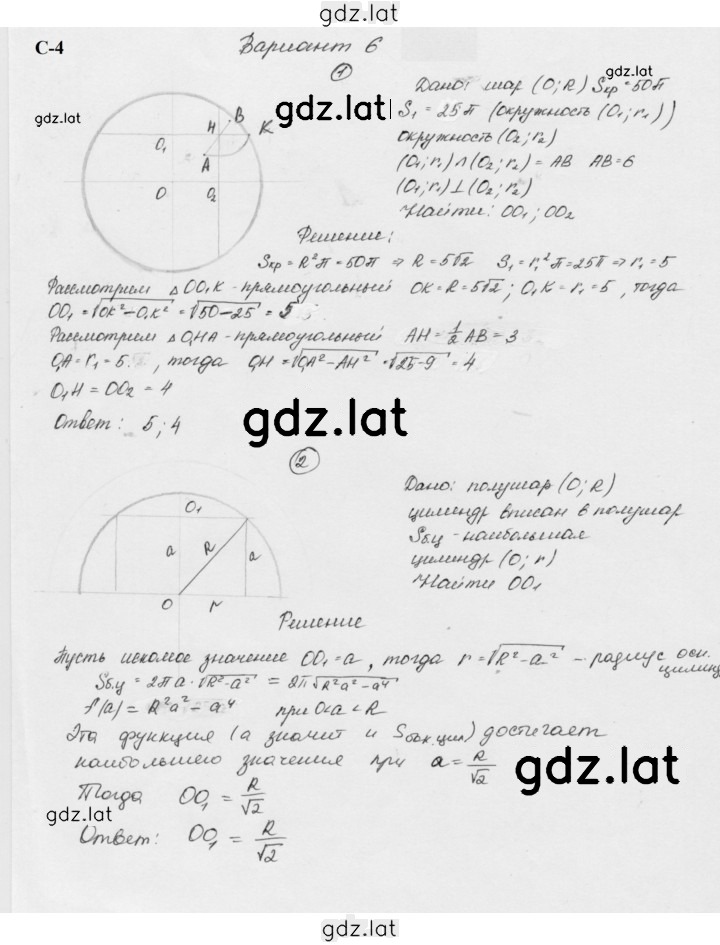 gdz.lat
С-4
Вариант 6
1
Дано: шар (O; R) Sкр = 50π
S₁ = 25π (окружность (O₁; r₁))
окружность (O₂; r₂)
(O₁; r₁) ∩ (O₂; r₂) = AB AB = 6
(O₁; r₁) ⊥ (O₂; r₂)
Найти: OO₁; OO₂
gdz.lat
gdz.lat
B
H
K
O₁
A
O
O₂
Решение:
Sкр = R²π = 50π ⇒ R = 5√2 S₁ = r₁²π = 25π ⇒ r₁ = 5
Рассмотрим △OO₁K - прямоугольный OK = R = 5√2; O₁K = r₁ = 5, тогда
OO₁ = √OK² - O₁K² = √50-25 = 5
Рассмотрим △O₁HA - прямоугольный AH = 1/2 AB = 3
O₁A = r₁ = 5. , тогда O₁H = √O₁A² - AH² = √25-9 = 4
O₁H = OO₂ = 4
Ответ: 5; 4
gdz.lat
2
Дано: полушар (O; R)
цилиндр вписан в полушар
Sбц - наибольшая
цилиндр (O; r)
Найти OO₁
O₁
a
R
a
O
r
Решение
Пусть искомое значение OO₁ = a, тогда r = √R² - a² - радиус осн. цилинд
Sбц = 2πa · √R² - a² = 2π√R²a² - a⁴
f(a) = R²a² - a⁴ при 0<a<R
Эта функция (а значит и Sбок.цил) достигает
наибольшего значения при a = R/√2
gdz.lat
Тогда OO₁ = R/√2
gdz.lat
Ответ: OO₁ = R/√2
gdz.lat